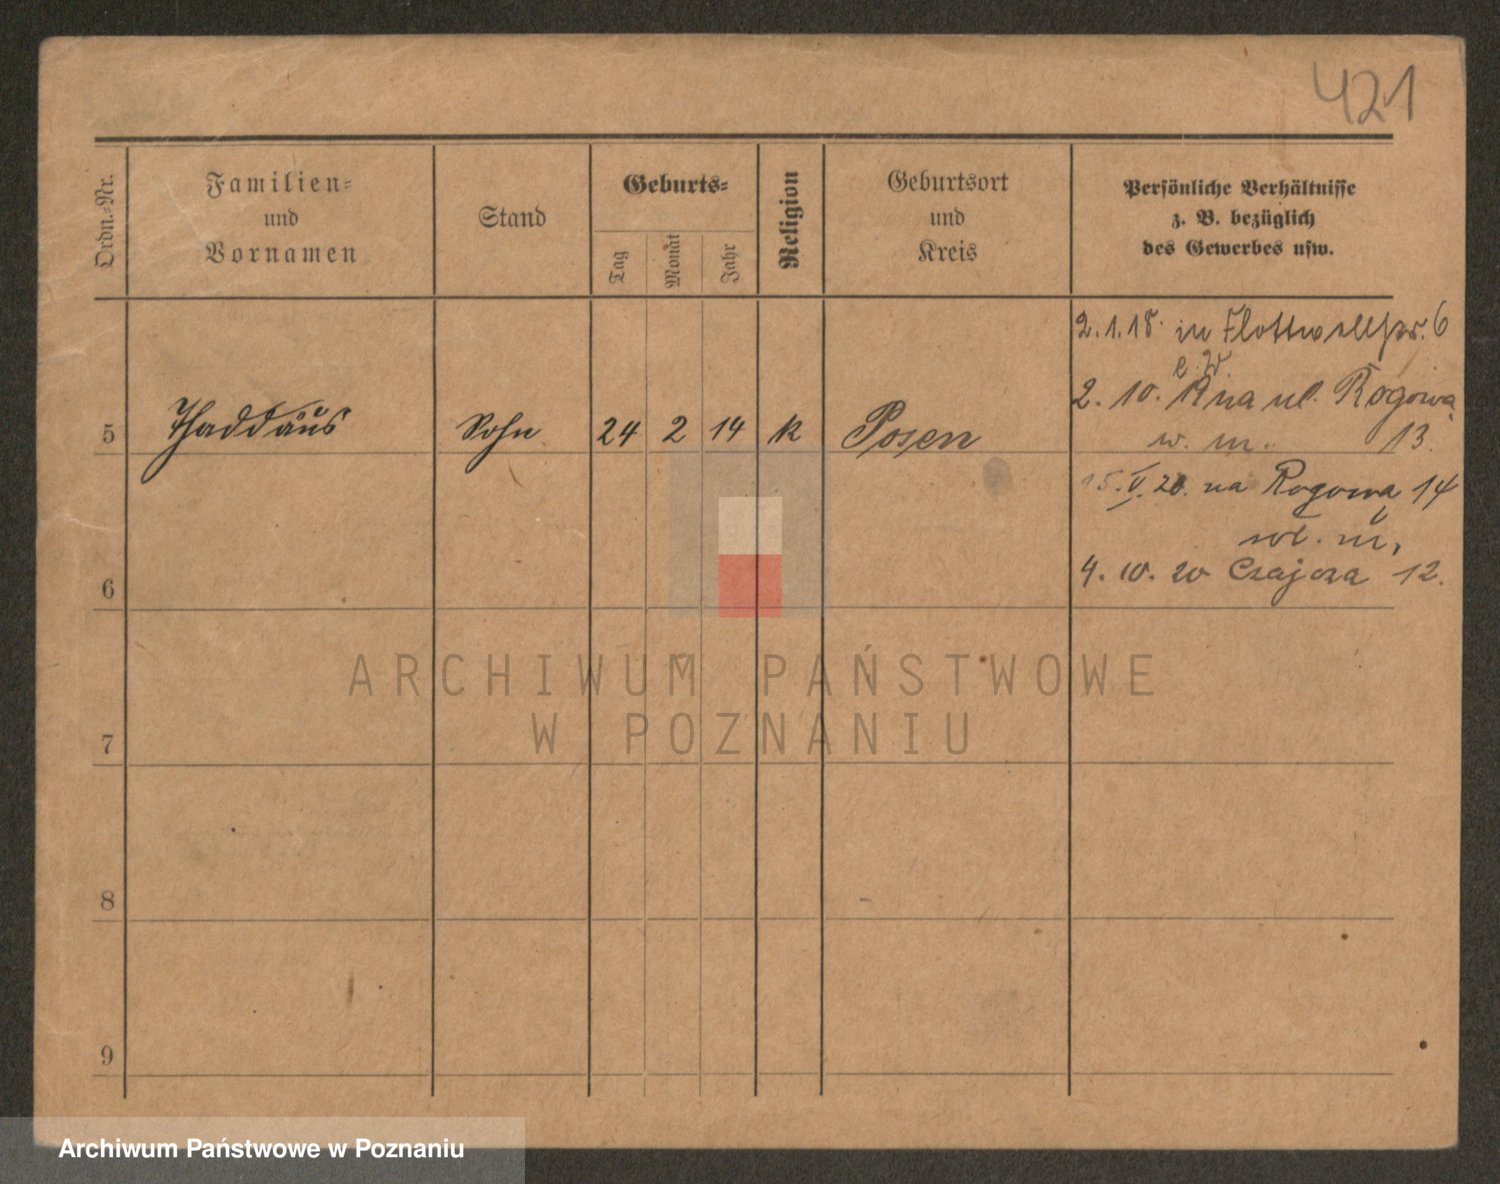 421
Ordn.-Nr.
Familien-
und
Vornamen
Stand
Geburts-
Tag
Monat
Jahr
Religion
Geburtsort
und
Kreis
Persönliche Verhältnisse
z. B. bezüglich
des Gewerbes usw.
2.1.18. in Flottwellstr. 6
2. 10. na ul. Rogowa
w. m. 13.
5 Thaddäus Sohn 24 2 14 k Posen
15. V. 20. na Rogowa 14
m,
6
4. 10. 20 Czajcza 12.
ARCHIWUM PAŃSTWOWE
W POZNANIU
7
8
9
Archiwum Państwowe w Poznaniu